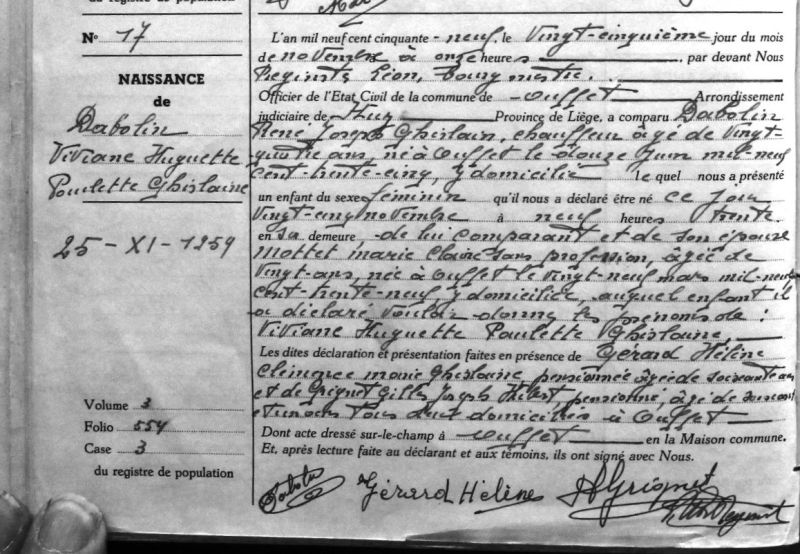 du registre de population
N° 17
NAISSANCE
de
Dabolin
Viviane Huguette
Paulette Ghislaine
25-XI-1959
Volume 3
Folio 554
Case 3
du registre de population
L'an mil neuf cent cinquante-neuf, le vingt-cinquième jour du mois
de novembre à onze heures, par devant Nous
Reginste Léon, bourgmestre.
Officier de l'Etat Civil de la commune de Ouffet Arrondissement
judiciaire de Huy Province de Liège, a comparu Dabolin
René Joseph Ghislain, chauffeur âgé de vingt-
quatre ans, né à Ouffet le douze juin mil-neuf
cent-trente-cinq, y domicilié lequel nous a présenté
un enfant du sexe féminin qu'il nous a déclaré être né ce jour
vingt-cinq novembre à neuf heures trente
en sa demeure, de lui comparant et de son épouse
Mottet Marie Claire sans profession, âgée de
vingt-ans, née à Ouffet le vingt-neuf mars mil-neuf
cent-trente-neuf y domiciliée, auquel enfant il
a déclaré vouloir donner les prénoms de :
Viviane Huguette Paulette Ghislaine,
Les dites déclaration et présentation faites en présence de Gérard Hélène
Clémence Marie Ghislaine pensionnée âgée de soixante ans
et de Grignet Gilles Joseph Hubert pensionné, âgé de soixante
et tous deux domiciliés à Ouffet
Dont acte dressé sur-le-champ à Ouffet en la Maison commune.
Et, après lecture faite au déclarant et aux témoins, ils ont signé avec Nous.
Dabolin Gérard Hélène Grignet